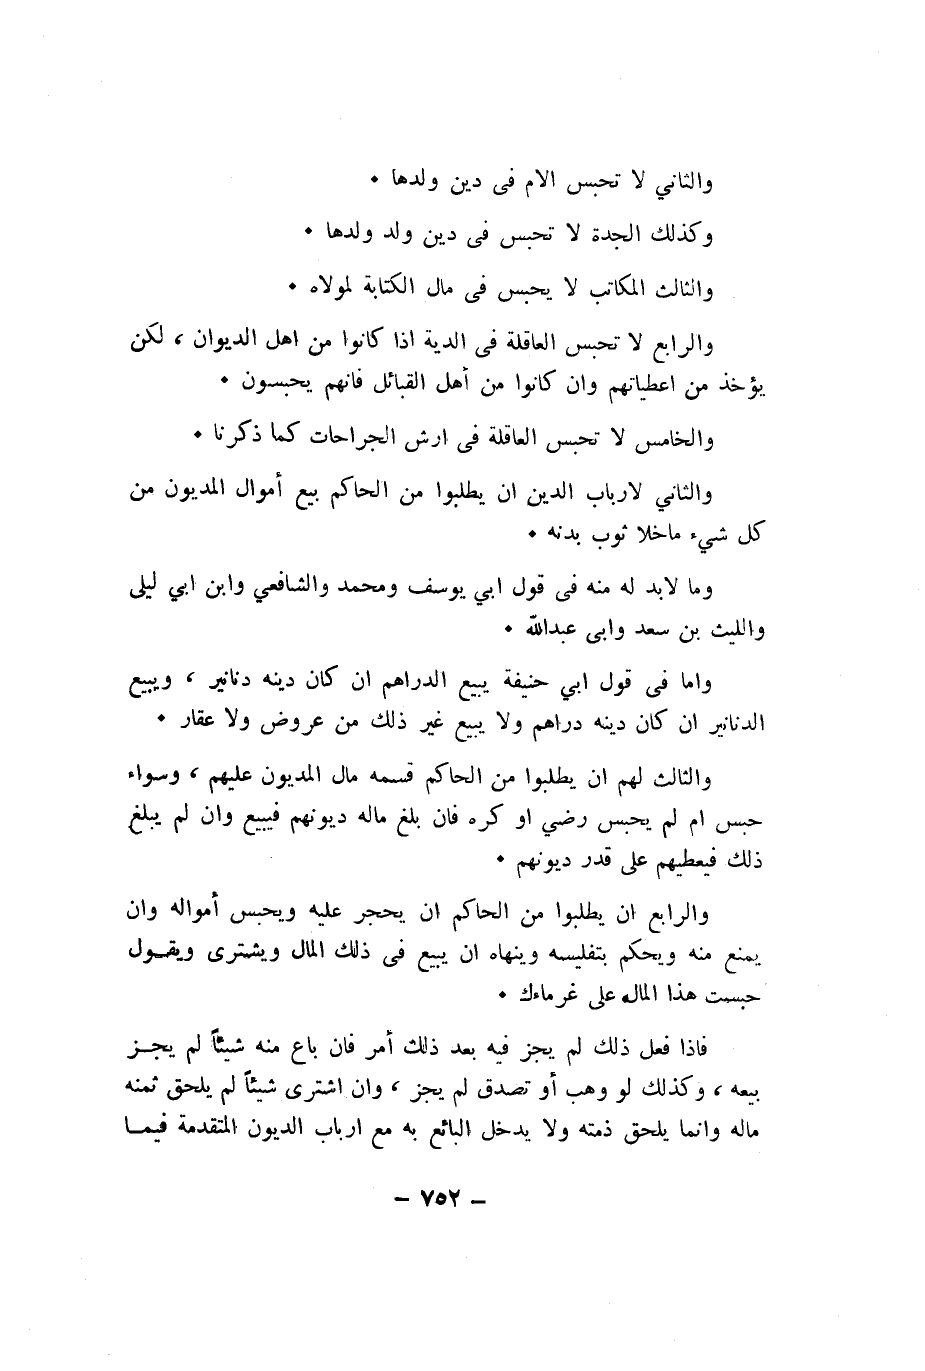 والثاني لا تحبس الام فى دين ولدها •
وكذلك الجدة لا تحبس فى دين ولد ولدها •
والثالث المكاتب لا يحبس فى مال الكتابة لمولاه •
والرابع لا تحبس العاقلة فى الدية اذا كانوا من اهل الديوان ، لكن
يؤخذ من اعطياتهم وان كانوا من أهل القبائل فانهم يحبسون •
والخامس لا تحبس العاقلة فى ارش الجراحات كما ذكرنا •
والثاني لارباب الدين ان يطلبوا من الحاكم بيع أموال المديون من
كل شيء ماخلا ثوب بدنه •
وما لابد له منه فى قول ابي يوسف ومحمد والشافعي وابن ابي ليلى
والليث بن سعد وابى عبدالله •
واما فى قول ابي حنيفة يبيع الدراهم ان كان دينه دنانير ، ويبيع
الدنانير ان كان دينه دراهم ولا يبيع غير ذلك من عروض ولا عقار •
والثالث لهم ان يطلبوا من الحاكم قسمه مال المديون عليهم ، وسواء
حبس ام لم يحبس رضي او كره فان بلغ ماله ديونهم فيبيع وان لم يبلغ
ذلك فيعطيهم على قدر ديونهم •
والرابع ان يطلبوا من الحاكم ان يحجر عليه ويحبس أمواله وان
يمنع منه ويحكم بتفليسه وينهاه ان يبيع فى ذلك المال ويشترى ويقول
حبست هذا المال على غرماءك •
فاذا فعل ذلك لم يجز فيه بعد ذلك أمر فان باع منه شيئاً لم يجز
بيعه ، وكذلك لو وهب أو تصدق لم يجز ، وان اشترى شيئاً لم يلحق ثمنه
ماله وانما يلحق ذمته ولا يدخل البائع به مع ارباب الديون المتقدمة فيما
– ٧٥٢ –